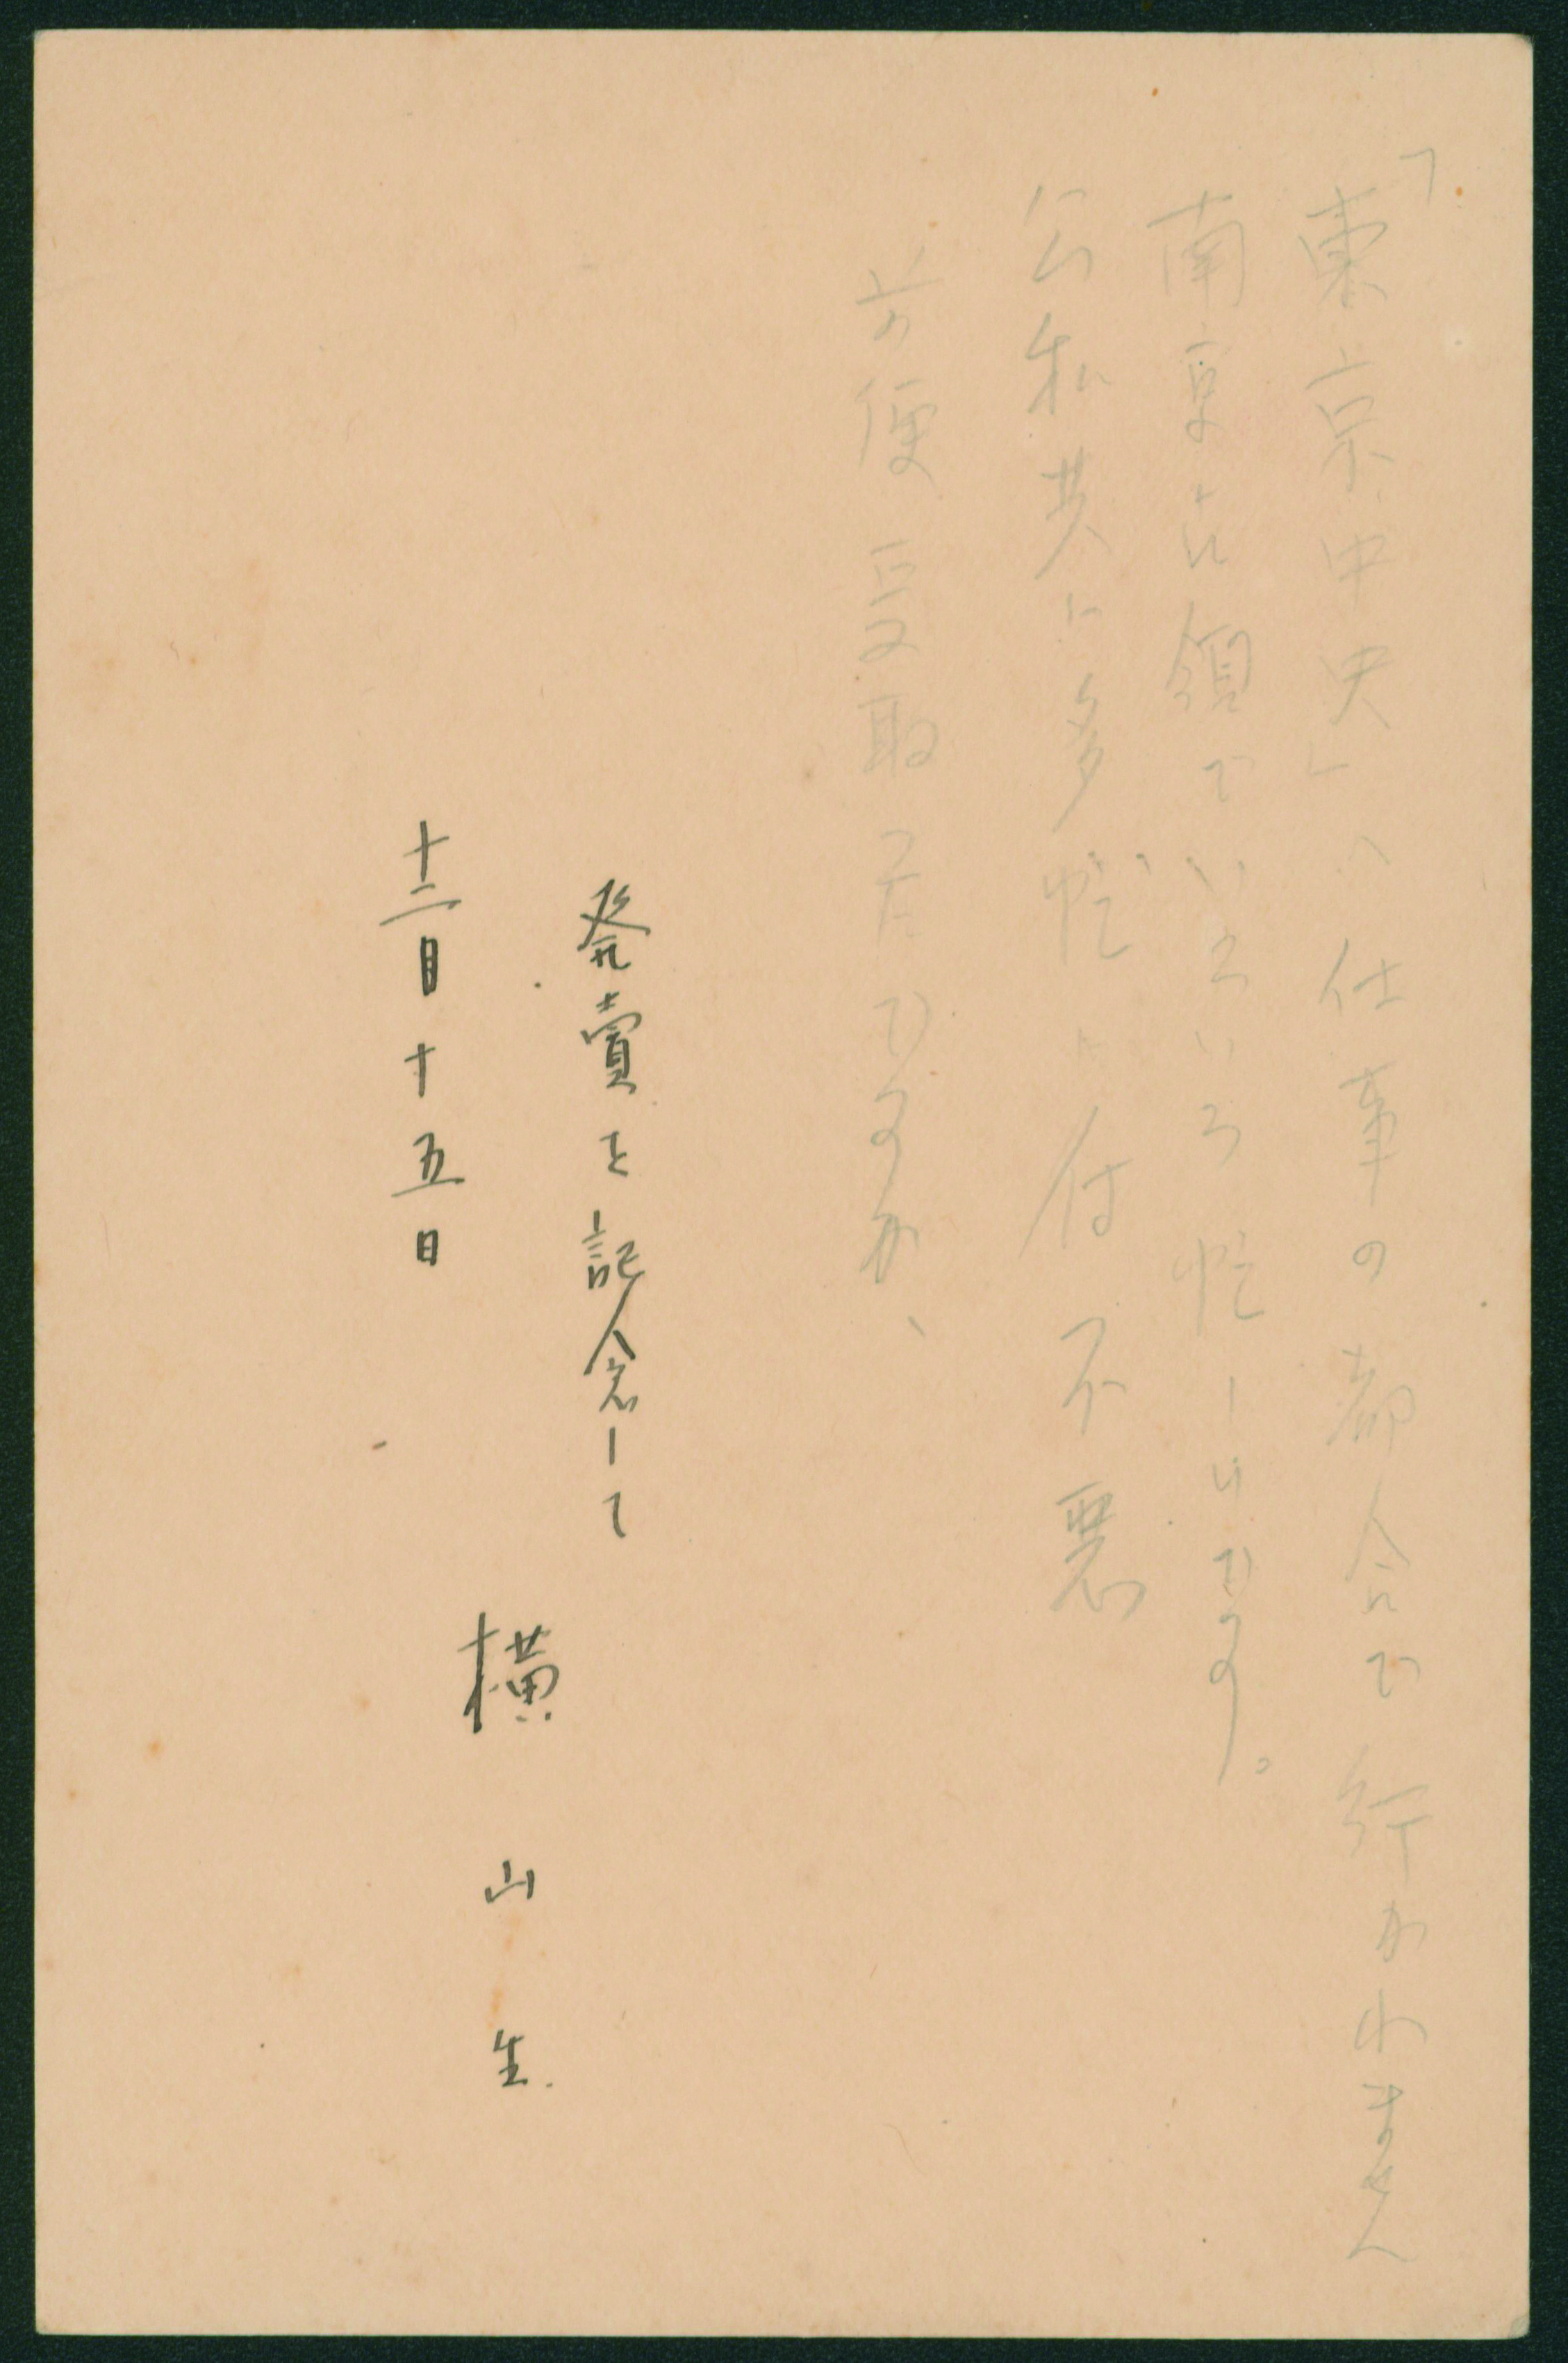 「東京中央」ハ仕事の都合で行かれません
南京占領でいろいろ忙しいです。
公私共に多忙に付不悪
前便受取つたですか、
発賣を記念して
十二月十五日
横山生.